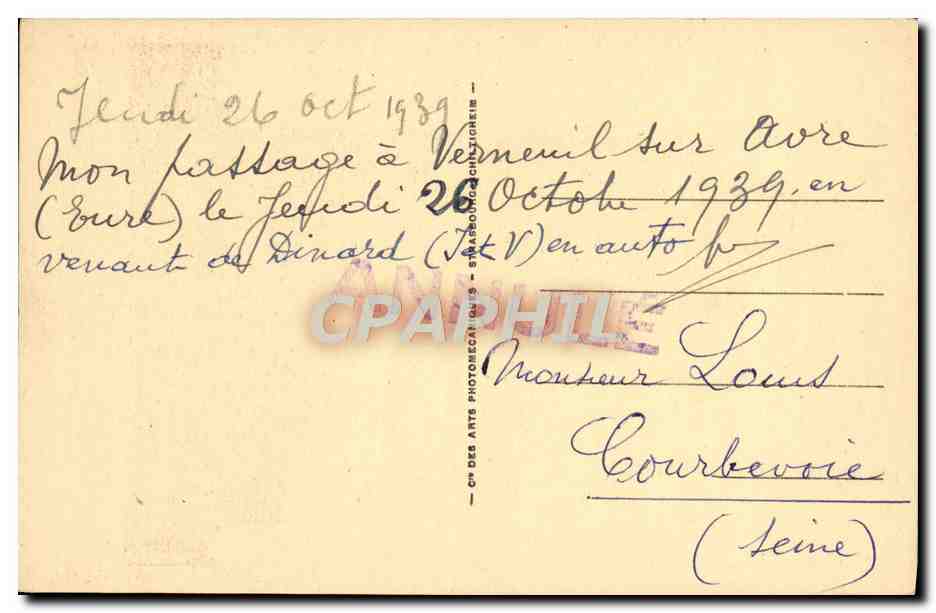 Jeudi 26 Oct 1939
Mon passage à Verneuil sur Avre
(Eure) le Jeudi 26 Octobre 1939. en
venant de Dinard (I et V) en auto
ANNULÉ
CPAPHIL
Monsieur Louis
Courbevoie
(Seine)
— Cie DES ARTS PHOTOMECANIQUES - STRASBOURG-SCHILTIGHEIM —